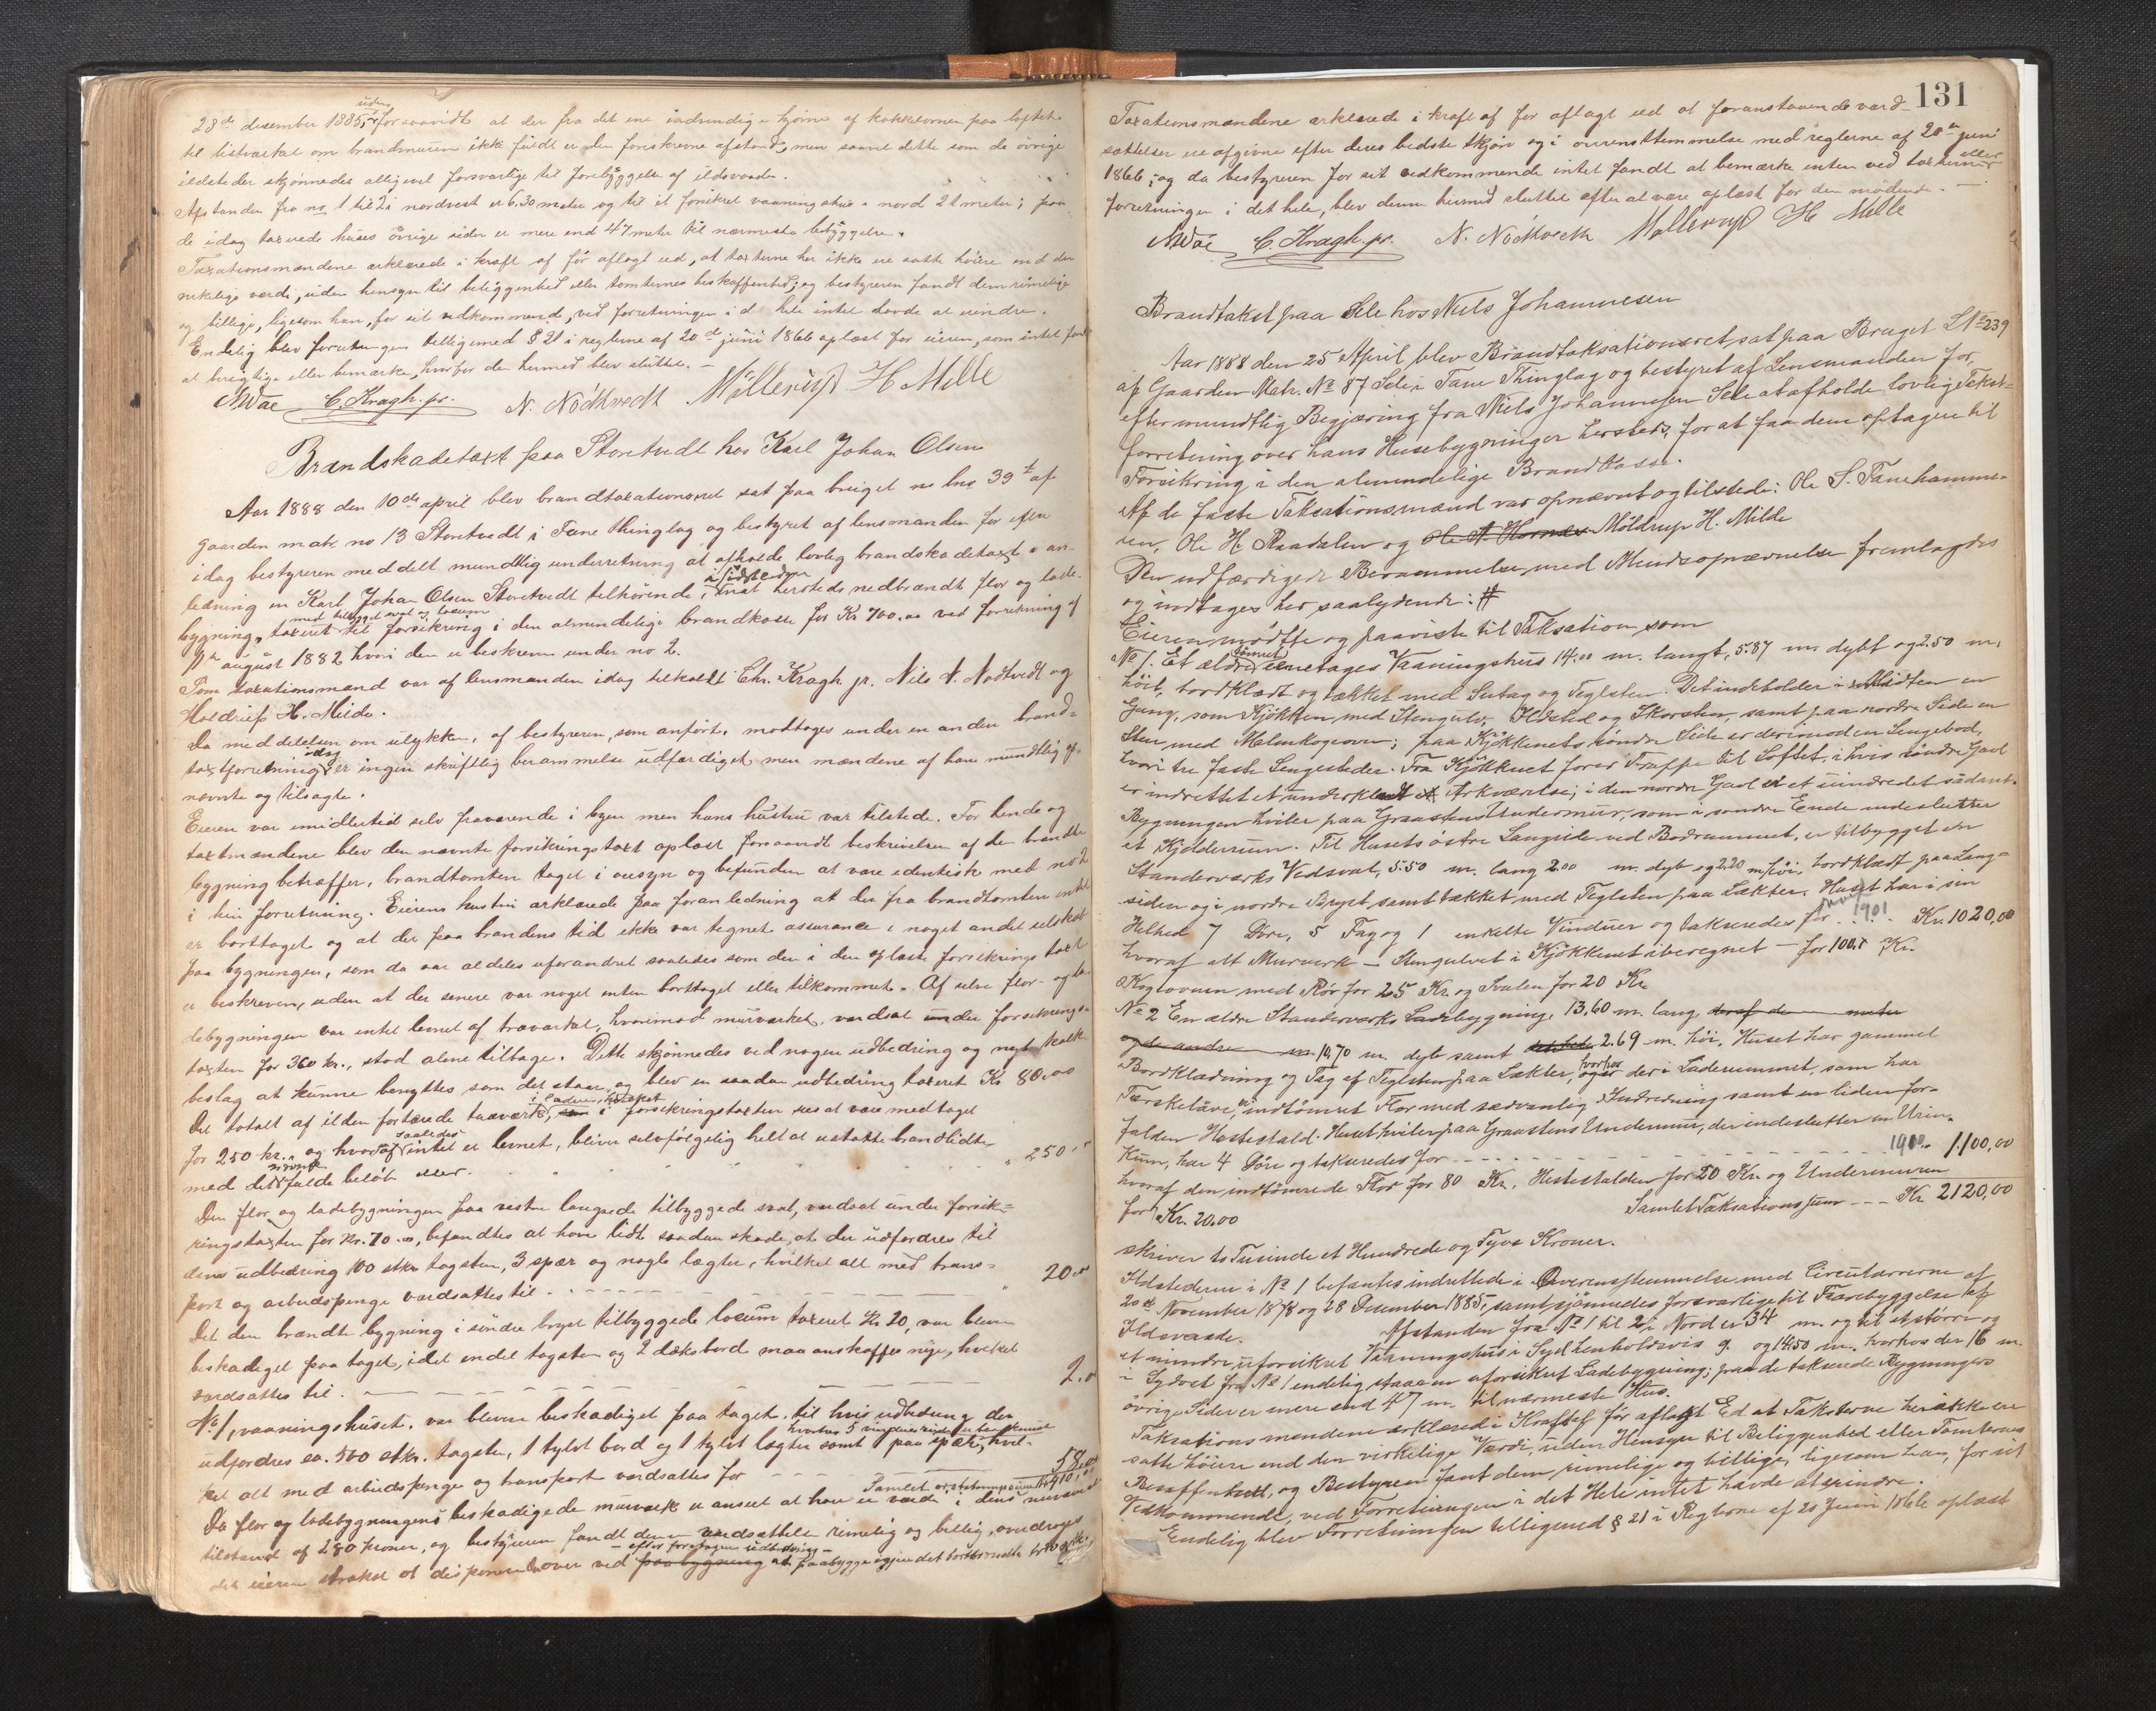 28de desember 1885, uden forsaavidt at der fra det ene indvendige hjørne af kakkelovnen paa loftet
til listværket om brandmuren ikke fuldt er den foreskrevne afstand, men saavel dette som de övrige
ildsteder skjønnedes alligevel forsvarlige til forebyggelse af ildsvaade.
Afstanden fra no 1 til 2 i nordvest er 6.30 meter og til et forsikret vaaningshus i nord 21 meter; paa
de idag taxerede huses övrige sider er mere end 47 meter til nærmeste bebyggelse.
Taxationsmændene erklærede i kraft af för aflagt ed, at taxterne her ikke ere satte höiere end den
virkelige værdi, uden hensyn til beliggenhed eller tomternes beskaffenhed; og bestyreren fandt dem rimelige
og billige, ligesom han, for sit vedkommende, ved forretningen i det hele intet havde at erindre.
Endelig blev forretningen tilligemed § 21 i reglerne af 20de juni 1866 oplæst for eieren, som intet fandt
at berigtige eller bemærke, hvorfor den hermed blev sluttet. –
C. Kragh. jr. N. Nödtvedt Mölderup H Milde
Brandskadetaxt paa Storetvedt hos Karl Johan Olsen
Aar 1888 den 10de april blev brandtaxationsret sat paa bruget no lno 39 af
gaarden matr. no 13 Storetvedt i Fane thinglag og bestyret af lensmanden for efter
idag bestyreren meddelt mundtlig underretning at afholde lovlig brandskadetaxt i an-
ledning en Karl Johan Olsen Storetvedt tilhörende, i sidstleden nat hersteds nedbrændt flor og lade-
bygning, med tilbygget sval og locum taxeret til forsikring i den almindelige brandkasse for Kr 700.00 ved forretning af
august 1882 hvori den er beskreven under no 2.
Som taxationsmænd var af lensmanden idag tilkaldt Chr. Kragh jr. Nils N. Nødtvedt og
Moldrup H. Milde.
Da meddelelsen om ulykken, af bestyreren, som anført, modtoges under en anden brand-
taxtforretning idag er ingen skriftlig berammelse udfærdiget men mændene af ham mundtlig op-
nævnte og tilsagte.
Eieren var imidlertid selv fraværende i byen men hans hustru var tilstede. For hende og
taxtmændene blev den nævnte forsikringstaxt oplæst forsaavidt beskrivelsen af den brændte
bygning betræffer, brandtomten taget i öiesyn og befunden at være identisk med no 2
i hin forretning. Eierens hustru erklærede paa foranledning at der fra brandtomten intet
er borttaget og at der paa brandens tid ikke var tegnet assurance i noget andet selskab
paa bygningen, som da var aldeles uforandret saaledes som den i den oplæste forsikringstaxt
er beskreven, uden at der senere var noget enten borttaget eller tilkommet. Af selve flor- og la-
debygningen var intet levnet af træværket, hvorimod murværket, værdsat under forsikrings-
taxten for 360 kr., stod alene tilbage. Dette skjønnedes ved nogen udbedring og nyt kalk-
beslag at kunne benyttes som det staar, og blev en saadan udbedring taxeret Kr 80.00
Det totalt af ilden fortærede træværk, i laden, i forsikringstaxten sees at være medtaget
for 250 kr., og hvoraf saaledes intet er levnet, bliver selvfölgelig helt at erstatte brandlidte
med det fulde belöb eller . . . . . . . . . . „ 250.00
Den flor og ladebygningen paa vestre langside tilbyggede sval, værdsat under forsik-
ringstaxten for Kr. 70.00, befandtes at have lidt saadan skade, at der udfordres til
dens udbedring 100 stkr tagsten, 3 spær og nogle lægter, hvilket alt med trans-
port og arbeidspenge værdsattes til . . . „ 20.00
Det den brændte bygning i söndre bryst tilbyggede locum taxeret Kr 20, var bleven
beskadiget paa taget, idet endel tagsten og 2 dæksbord maa anskaffes nye, hvilket
værdsattes til . . . 2.0
No 1, vaaningshuset, var bleven beskadiget paa taget, til hvis udbedring der
udfordres ca. 500 stkr. tagsten, 1 tylvt bord og 1 tylvt lægter samt paa spær, hvil-
ket alt med arbeidspenge og transport værdsattes for . . . 58.00
Samlet erstatningssum Kr 410,00
Da flor og ladebygningens beskadigede murværk er anseet at have en værdi i dens nuværende
tilstand af 280 kroner, og bestyreren fandt denne værdsættelse rimelig og billig, overdroges
det eieren straks at disponere derover ved – efter foretagen udbedring – at paabygge igjen det bortbrændte

131
Taxationsmændene erklærede i kraft af för aflagt ed at foranstaaende værd-
sættelser ere afgivne efter deres bedste skjøn og i overensstemmelse med reglerne af 20de juni
1866; og da bestyreren for sit vedkommende intet fandt at bemærke enten ved taxterne eller
forretningen i det hele, blev denne hermed sluttet efter at være oplæst for den mödende. –
C. Kragh. jr. N. Nödtvedt Mölderup H Milde
Brandtakst paa Sele hos Niels Johannesen
Aar 1888 den 25 April blev Brandtaksationsret sat paa Bruget LNo 239
af Gaarden Matr. No 87 Sele i Fane Thinglag og bestyret af Lensmanden for
efter mundtlig Begjæring fra Niels Johannesen Sele at afholde lovlig Takst-
forretning over hans Husebygninger hersteds, for at faa dem optagen til
Forsikring i den almindelige Brandkasse.
Af de faste Taksationsmænd var opnævnt og tilstede: Ole S. Fanehamme-
ren, Ole H. Raadalen og Ole A. Hornæs Möldrup H. Milde
Den udfærdigede Berammelse med Mændsopnævnelse fremlagdes
og indtages her saalydende: #
Eieren mödtte og paaviste til Taksation som
No 1. Et ældre tömret eenetages Vaaningshus 14.00 m. langt, 5.87 m. dybt og 2.50 m.
höit, bordklædt og tækket med Sutag og Teglsten. Det indeholder i Midten en
Gang, som Kjökken med Stengulv, Ildsted og Skorsten, samt paa nordre Side en
Stue med Malmkogeovn; paa Kjökkenets söndre Side er derimod en Sengebod,
hvori tre faste Sengesteder. Fra Kjökkenet förer Trappe til Loftet, i hvis söndre Gavl
er indrettet et underklædt Arkværelse; i den nordre Gavl er et uindredet sådant.
Bygningen hviler paa Graastens Undermur, som i söndre Ende indeslutter
et Kjelderrum. Til Husets östre Langside ved Bodrummet, er tilbygget en
Standerværks Vedsval, 5.50 m. lang 2.00 m. dyb og 2.20 m. höi, bordklædt paa Lang-
siden og i nordre Bryst, samt tækket med Teglsten paa Lækter. Huset har i sin
Helhed 7 Döre, 5 Fag og 1 enkelte Vinduer og takseredes for . . 1901 . Kr. 1020,00
hvoraf alt Murværk – Stengulvet i Kjökkenet iberegnet – for 100. Kr.
Kogeovnen med Rör for 25 Kr. og Svalen for 20 Kr.
No 2 En ældre Standerværks Ladebygning, 13,60 m. lang, deraf den meter
og de andre m 10,70 m. dyb samt 2.69 m. höi. Huset har gammel
Bordklædning og Tag af Teglsten paa Lækter, hvorhos der i Laderummet, som har
Tærskelåve, er indtömret Flor med sædvanlig Indredning samt en liden for-
falden Hestestald. Huset hviler paa Graastens Undermur, der indeslutter en Urin-
Kum, har 4 Döre og takseredes for . . . . . 1900 . 1.100,00
hvoraf den indtömrede Flor for 80 Kr. Hestestalden for 20 Kr. og Undermuren
for Kr. 20.00 Samlet Taksationssum . . . Kr 2120,00
skriver to Tusinde et Hundrede og Tyve Kroner.
Ildstederne i No 1 befantes indrettede i Overensstemmelse med Circulærerne af
20de November 1878 og 28 December 1885, samt sjönnedes forsvarlige til Forebyggelse af
Ildsvaade. Afstanden fra No 1 til 2 i Nord er 34 m. og til et större og
et mindre, uforsikret Vaaningshus i Syd henholdsvis 9. og 14.50 m. hvorhos der 16 m.
i Sydvest fra No 1 endelig staaer en uforsikret Ladebygning; paa de takserede Bygningers
övrige Sider er mere end 47 m. til nærmeste Hus.
Taksationsmændene erklæred i Kraft af för aflagt Ed at Taksterne her ikke ere
satte höiere end den virkelige Værdi, uden Hensyn til Beliggenhed eller Tomternes
Besaffenhed, og Bestyreren fant dem, rimelige og billige, ligesom han, for sit
Vedkommende, ved Forretningen i det Hele intet havde at erindre.
Endelig blev Forretningen tilligemed § 21 i Reglerne af 20 Juni 1866 oplæst